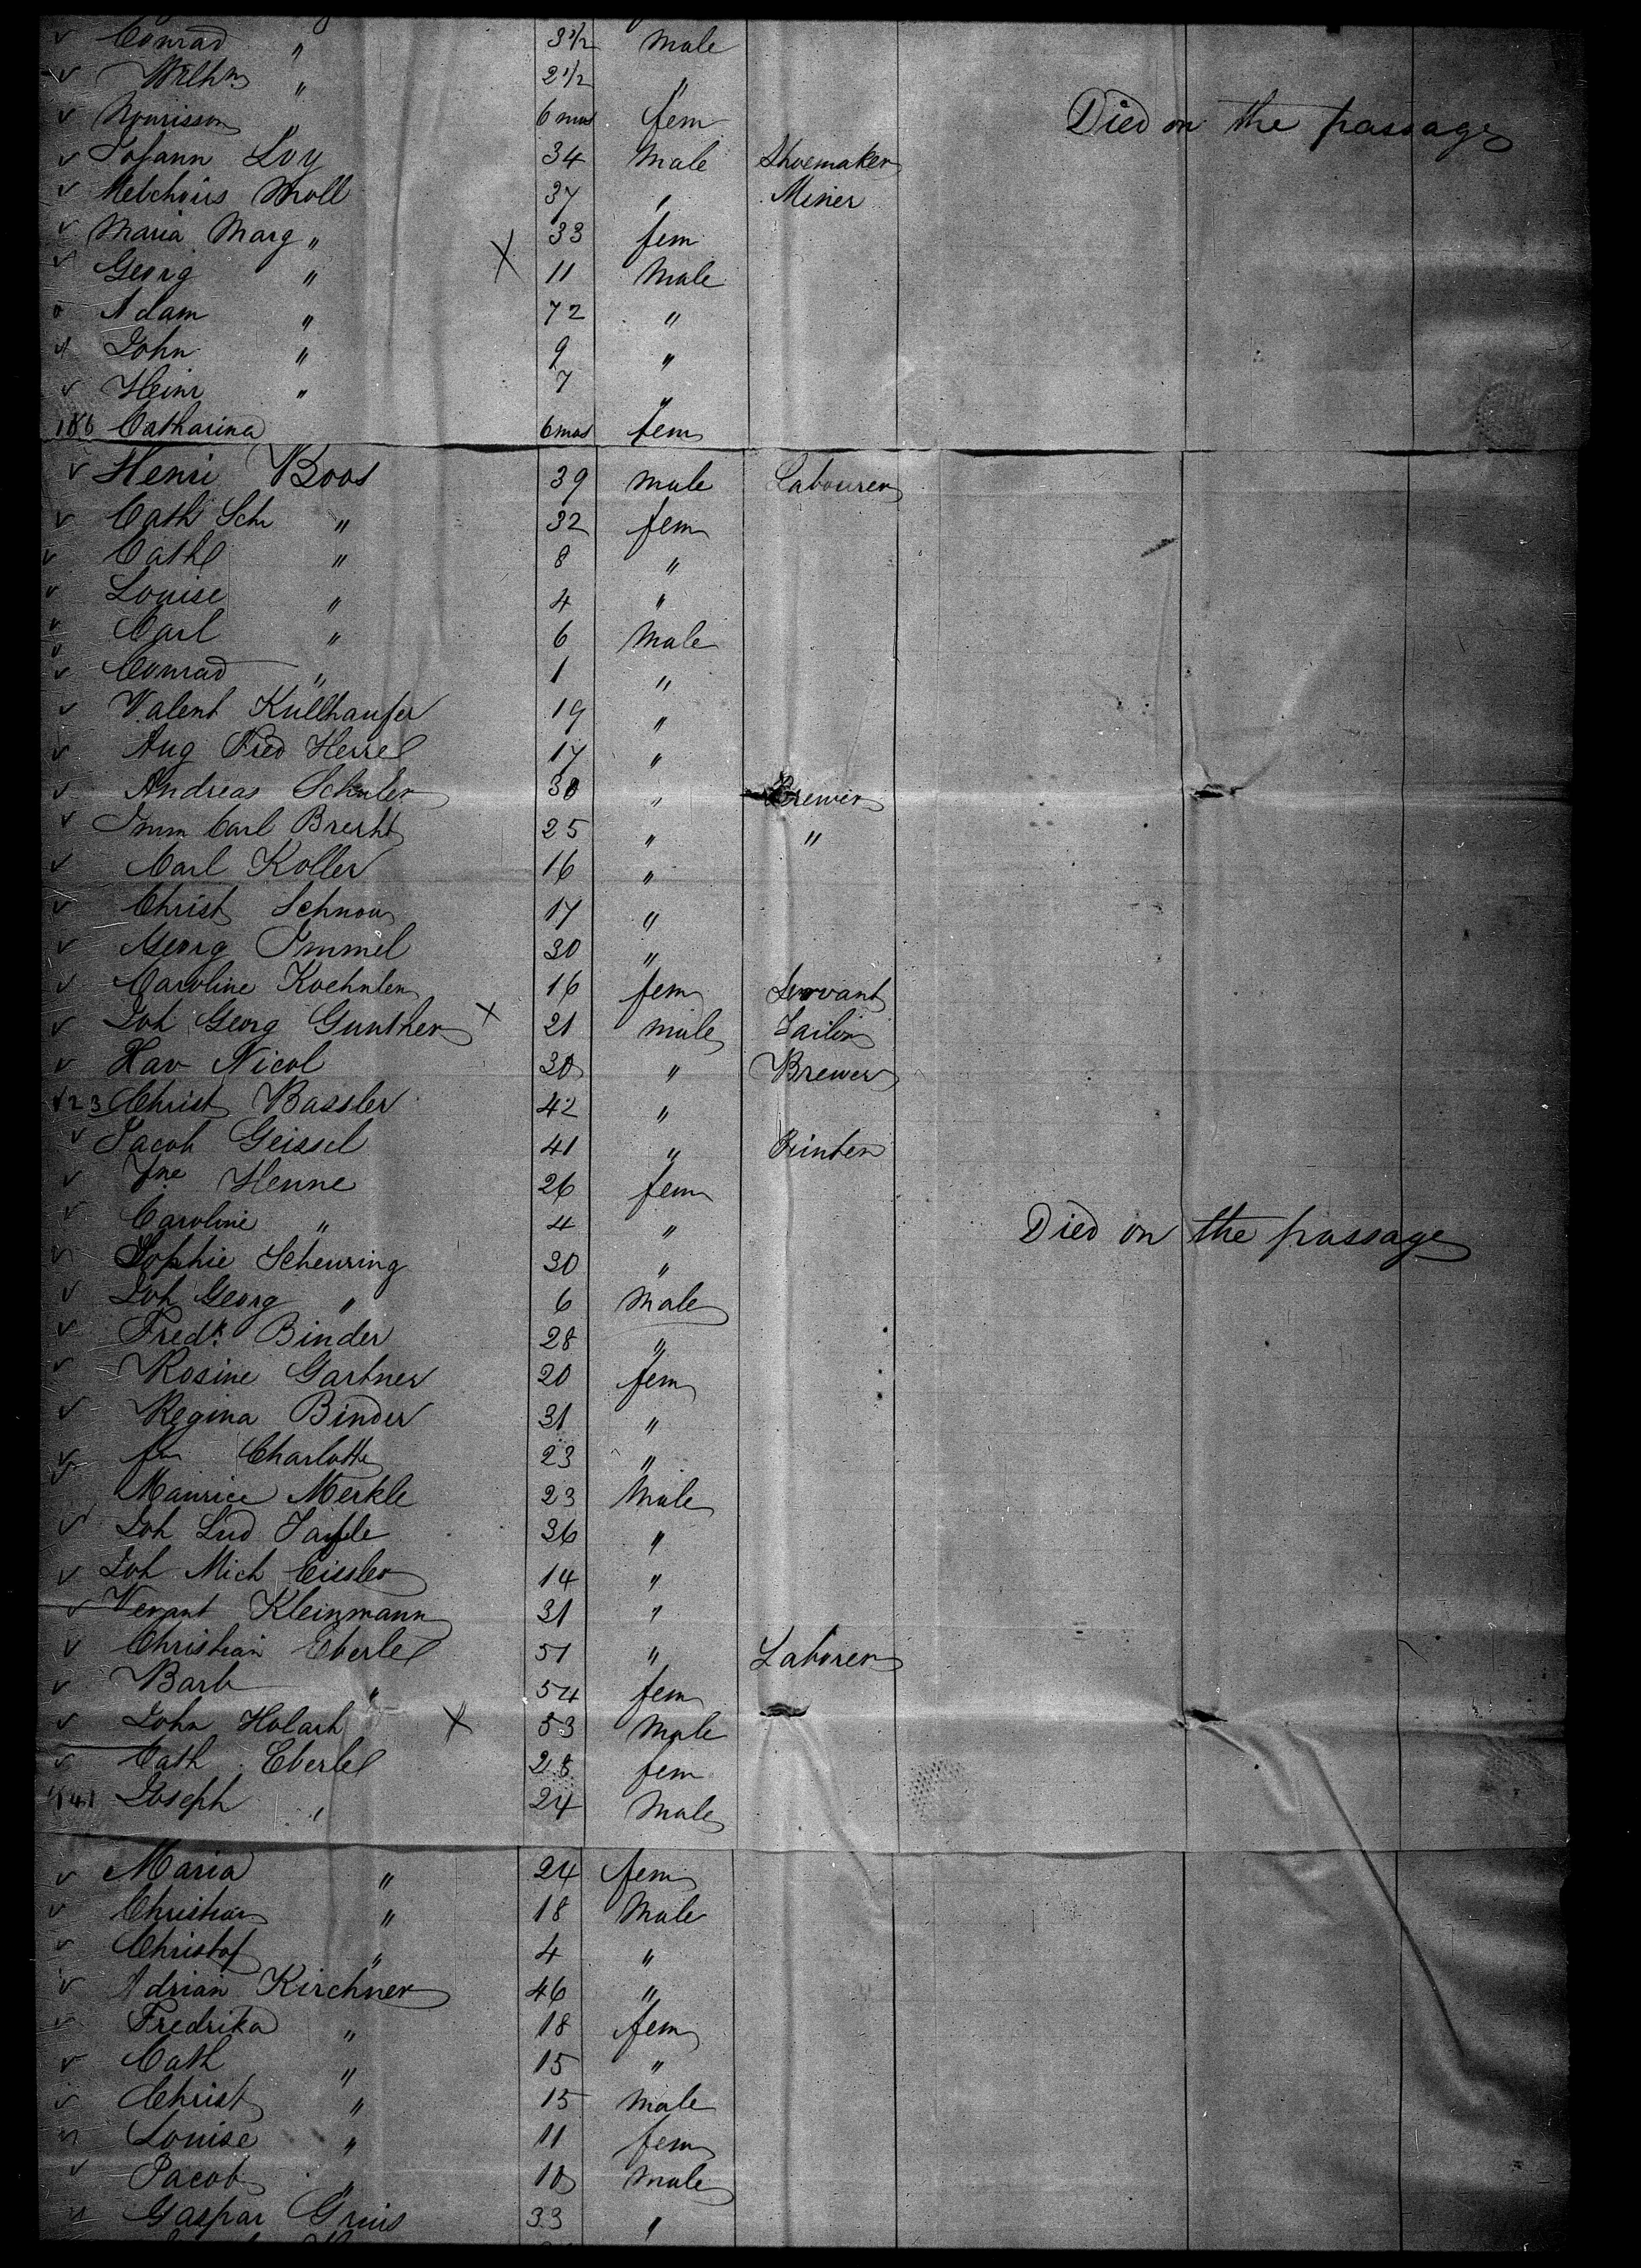 Conrad " 3 1/2 Male
Wilhm " 2 1/2 "
Nourisson " 6 mos fem Died on the passage
Johann Loy 34 Male Shoemaker
Melchoirs Moll 37 " Miner
Maria Marg " 33 fem
Georg " X 11 Male
Adam " 72 "
John " 9 "
Heinr " 7 "
Catharina 6 mos fem
Henri Boos 39 male Labourer
Cath Sch " 32 fem
Cath " 8 "
Louise " 4 "
Carl " 6 Male
Conrad " 1 "
Valent Küllhaufer 19 "
Aug Fred Herrel 17 "
Andreas Schuler 30 " Brewer
Imm Carl Brecht 25 " "
Carl Koller 16 "
Christ Schnow 17 "
Georg Immel 30 "
Caroline Koehnlen 16 fem Servant
Joh Georg Gunther X 21 male Tailor
Xav Nicol 30 " Brewer
123 Christ Bassler 42 "
Jacob Geissel 41 " Printer
Jne Henne 26 fem
Caroline " 4 " Died on the passage
Sophie Scheuring 30 "
Joh Georg " 6 Male
Fredk. Binder 28 "
Rosine Gartner 20 fem
Regina Binder 31 "
Charlotte 23 "
Maurice Merkle 23 Male
Joh Lud 36 "
Joh Mich Eissler 14 "
Kleinmann 31 "
Christian Eberle 51 " Laborer
Barb " 54 fem
John Holach X 53 Male
Cath Eberle 28 fem
141 Joseph " 24 Male
Maria " 24 fem
Christian " 18 Male
Christof " 4 "
Adrian Kirchner 46 "
Fredrika " 18 fem
Cath " 15 "
Christ " 15 male
Louise " 11 fem
Jacob " 10 male
Gaspar 33 "